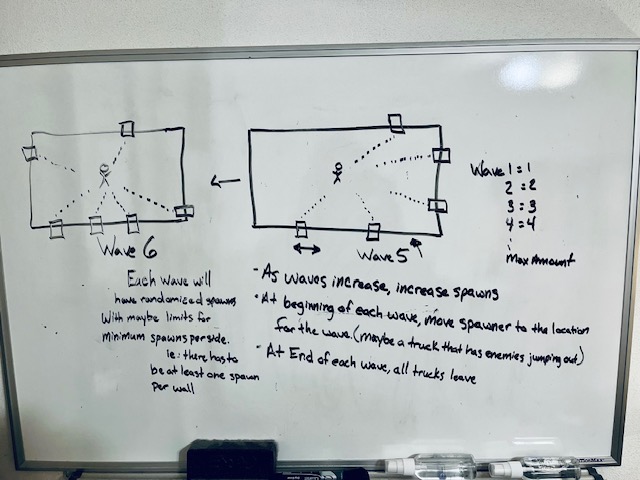 Wave 1 = 1
2 = 2
3 = 3
4 = 4
Max Amount
Wave 6
Wave 5
Each Wave will
have randomized spawns
With maybe limits for
minimum spawns per side.
ie: there has to
be at least one spawn
per wall
- As waves increase, increase spawns
• At beginning of each wave, move spawner to the location
for the wave. (maybe a truck that has enemies jumping out)
- At End of each wave, all trucks leave